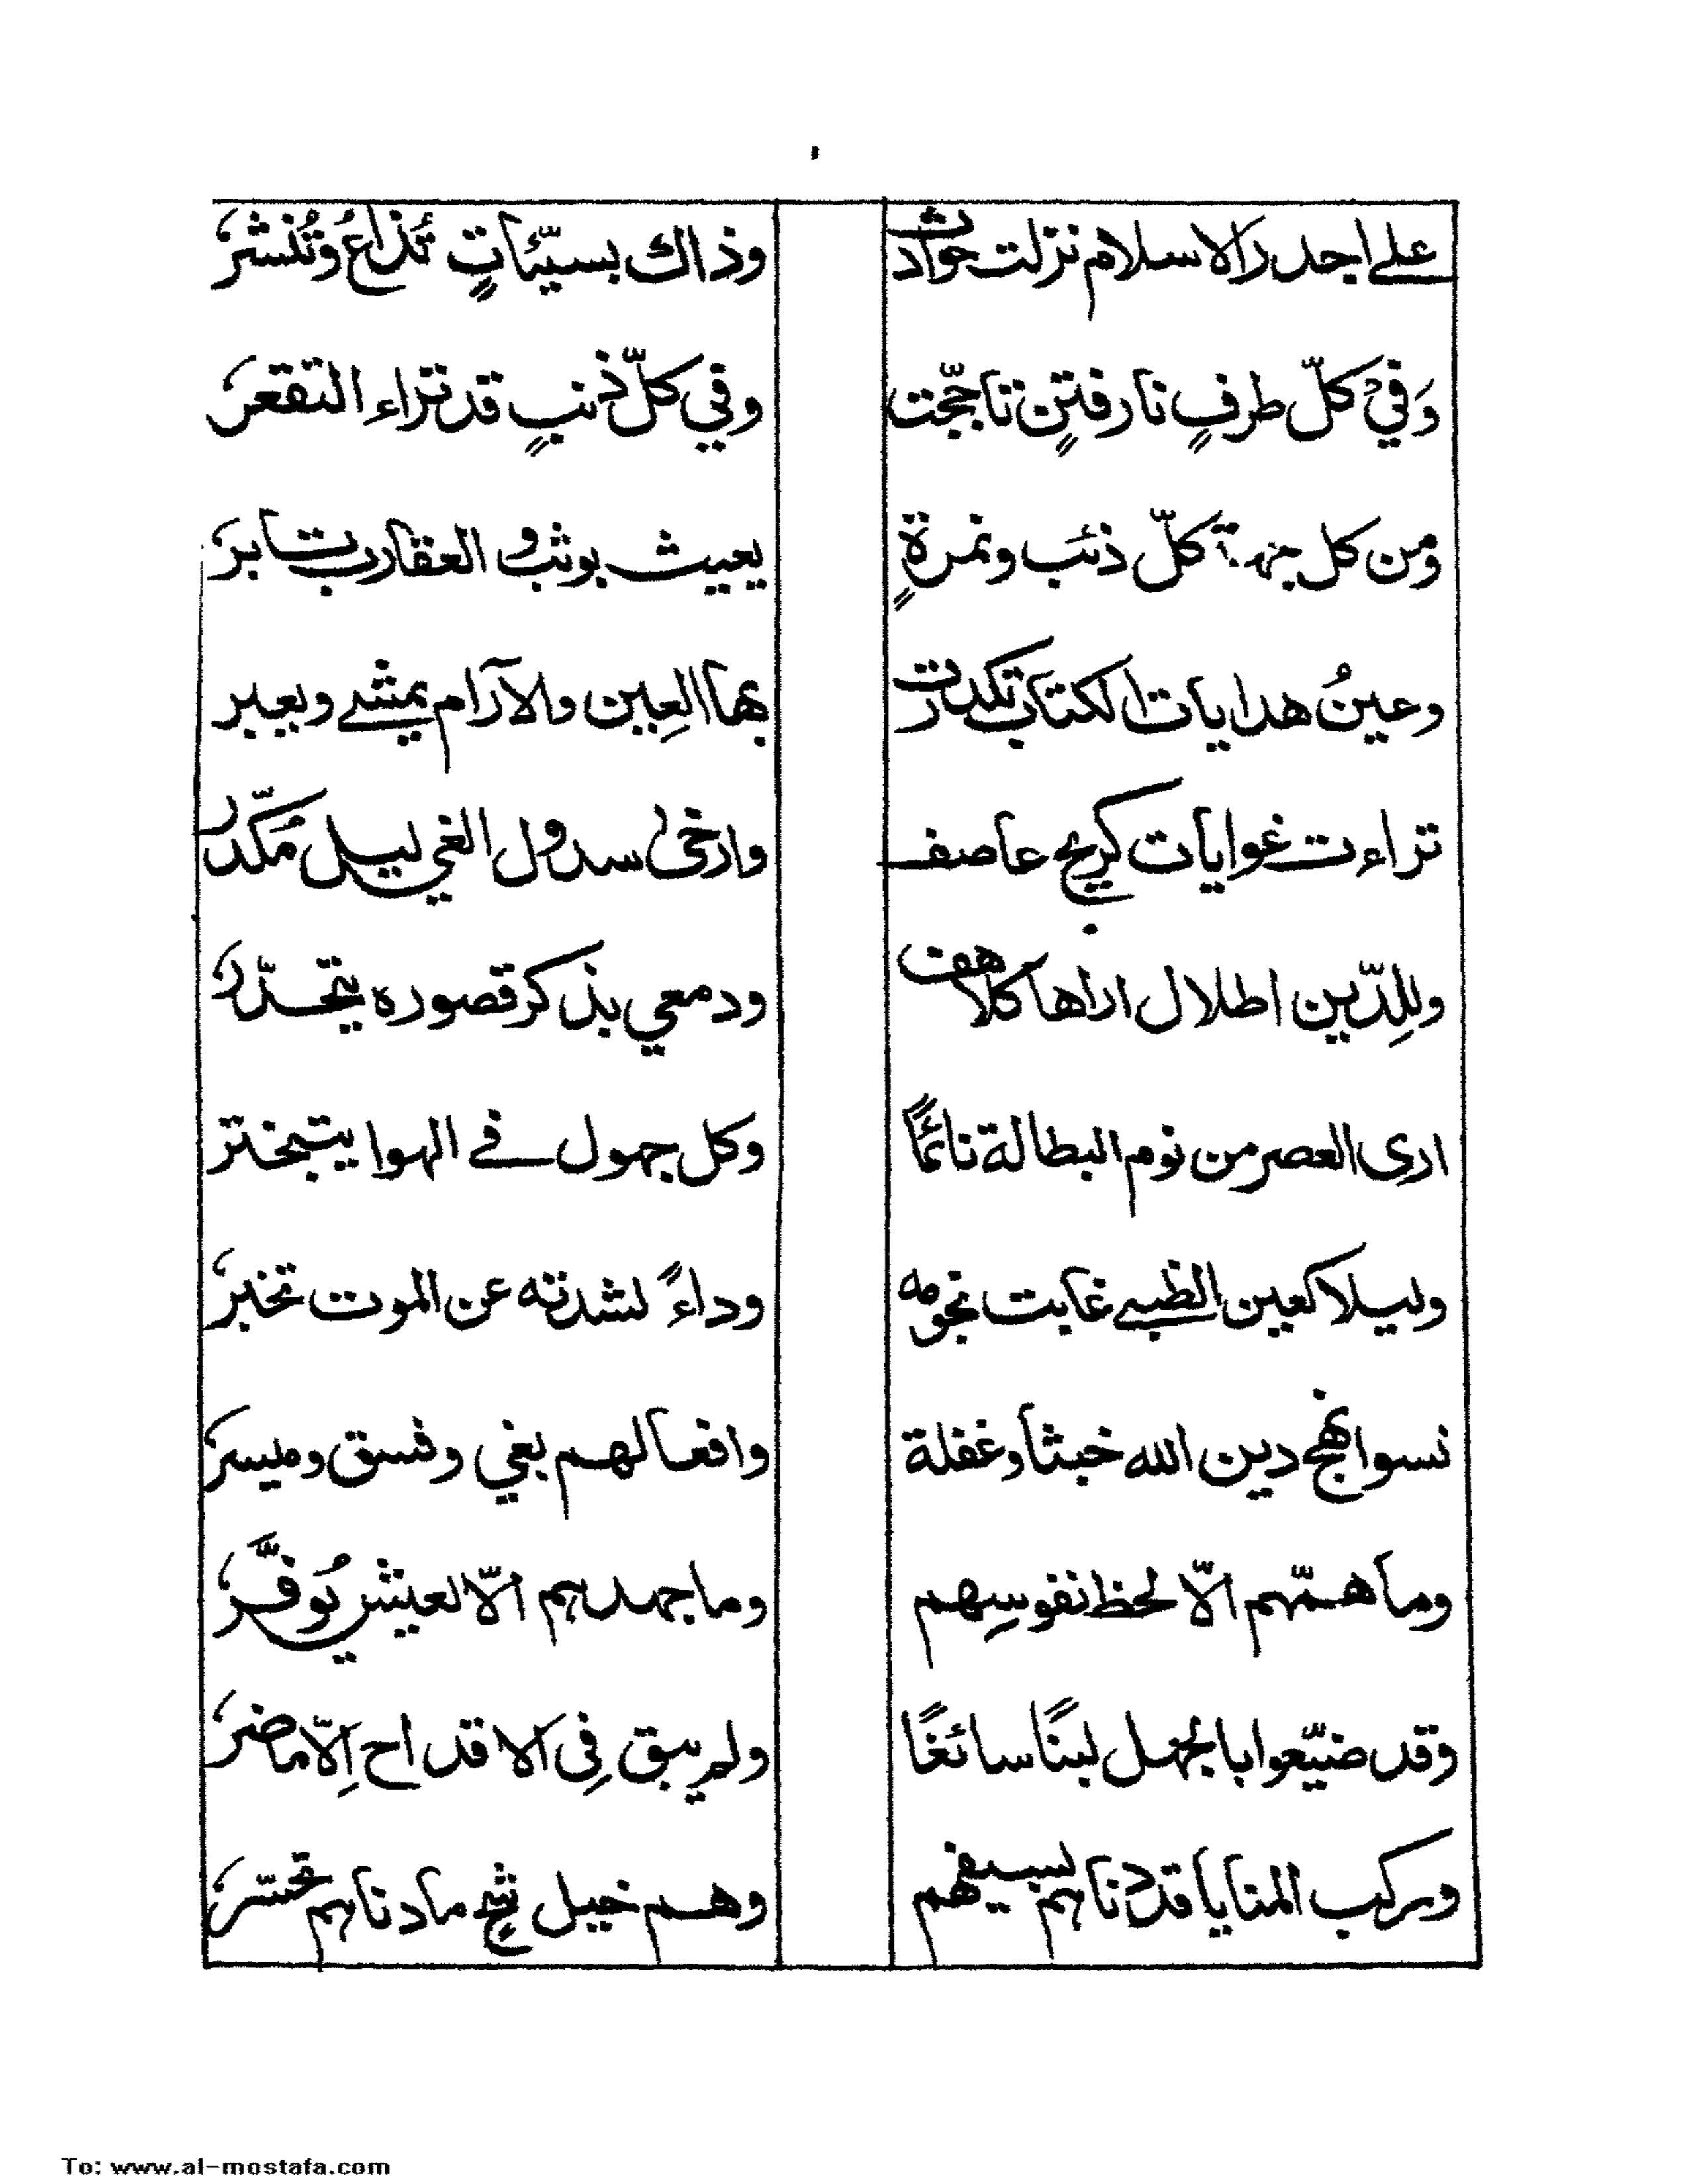 على اجدر الاسلام نزلت حوادث وذاك بسيّئاتٍ تُذاعُ وتُنشرُ
وَفي كلّ طرفٍ نار فتنٍ تاجّجت وفي كلّ ذنبٍ قد تراء التقعرُ
ومن كل جهة كلّ ذئب ونمرةٍ يعيث بوثب والعقارب تابرُ
وعينُ هدايات الكتاب تكدرت بها العِين والآرام يمشي ويعبر
تراءت غوايات كريح عاصف وارخى سدول الغي ليل مكدّر
وللِدّين اطلال اراها كلاهف ودمعي بذكر قصوره يتحدّرُ
ارى العصر من نوم البطالة نائمًا وكل جهول في الهوا يتبختر
وليلا كعين الظبي غابت نجومه وداءً لشدته عن الموت تخبرُ
نسوا نهج دين الله خبثا وغفلة وافعالهم بغي وفسق وميسرُ
وما همّهم الّا لحظ نفوسِهم وما جهدهم الّا لعيش يُوفَّرُ
وقد ضيّعوا بالجهل لبنًا سائغًا ولم يبق فِى الاقداح اِلّا ماضرُ
وركب المنايا قد دناهم لسيفهم وهم خيل شحِ ما دناهم تحسّرُ
To: www.al-mostafa.com